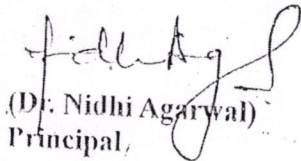 (Dr. Nidhi Agarwal)
Principal,